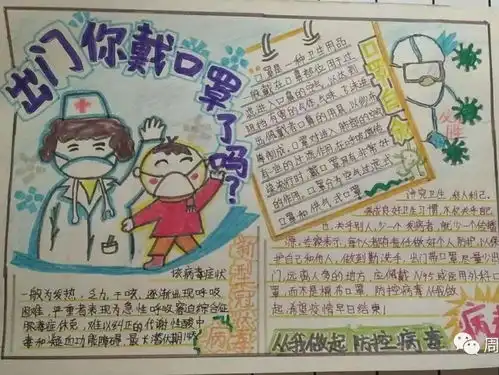 出门你戴口罩了吗？
口罩是一种卫生用品
一般戴在口鼻部位用于过
滤进入口鼻的空气，以达到
阻挡有害的气体、气味、飞沫进
出佩戴者口鼻的用具，以纱布
口罩对进入肺部的空气
有一定的过滤作用，在呼吸道传
染病流行时，戴口罩具有非常好
的作用。口罩分为空气过滤式
口罩和供气式口罩
该病毒症状
一般为发热、乏力、干咳、逐渐出现呼吸
困难，严重者表现为急性呼吸窘迫综合征
脓毒症休克、难以纠正的代谢性酸中
毒和凝血功能障碍，最长潜伏期14
新型冠状
病毒
养成良好卫生习惯，不仅关乎自
己，关乎别人，少一个发病者，就少一个传播
源，
护自己和他人，做到勤洗手，出门带口罩，尽量少出
门，远离人多的地方，应佩戴N95或医用外科口
罩，而不是棉布口罩，防控病毒从我做
起，希望疫情早日结束！
从我做起 防控病毒
病毒
周